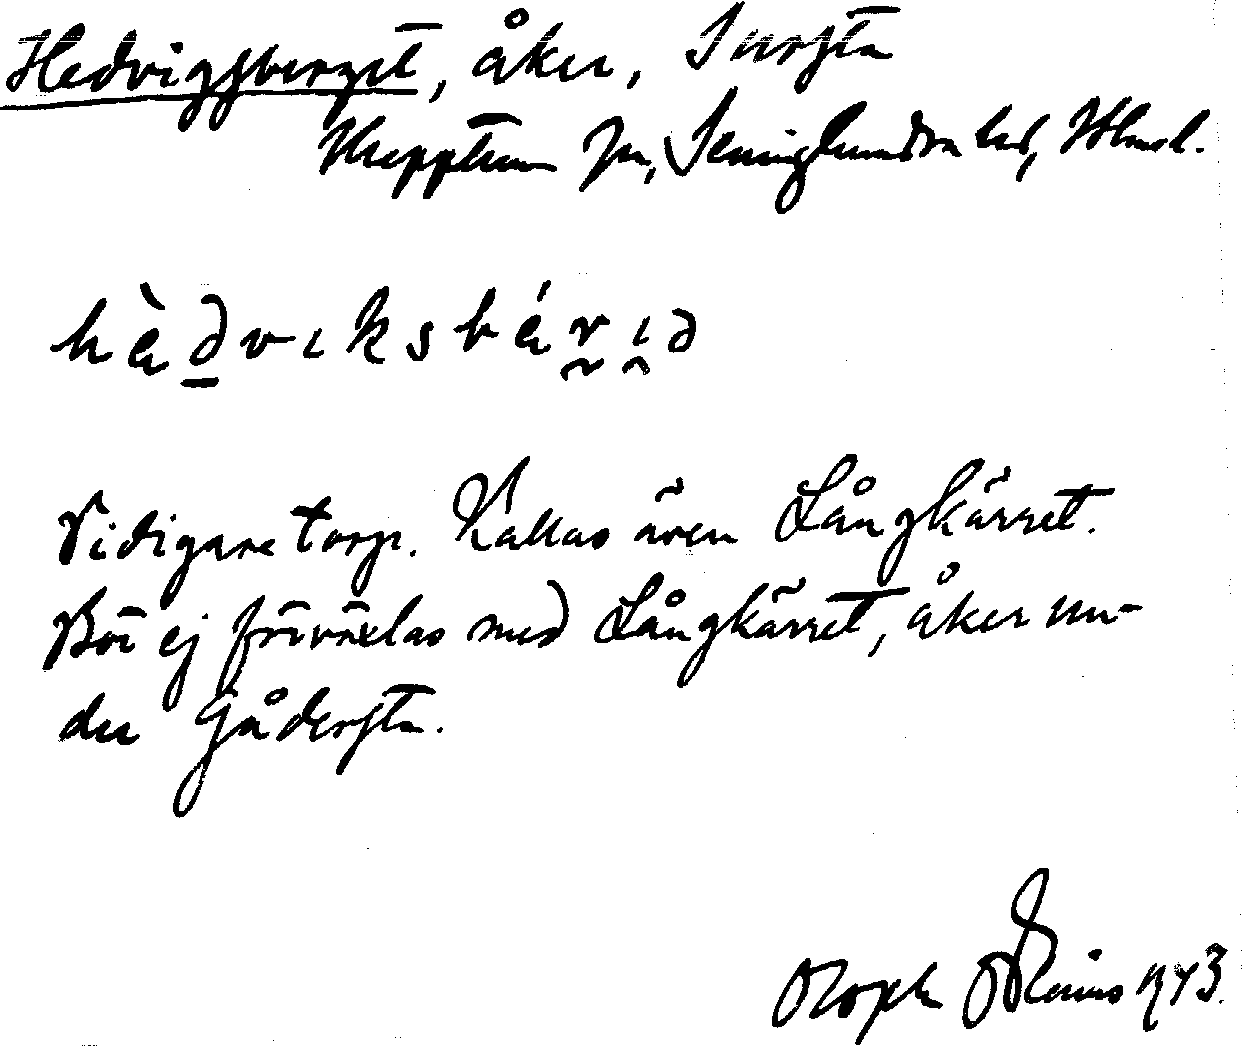 Hedvigsberget, åker, Tursta
Knutby sn, Seminghundra hd, Uppl.
hèdviksbárid
Tidigare torp. Kallas även Långkärret.
Bör ej förväxlas med Långkärret, åker un-
der Gådersta.
1943.